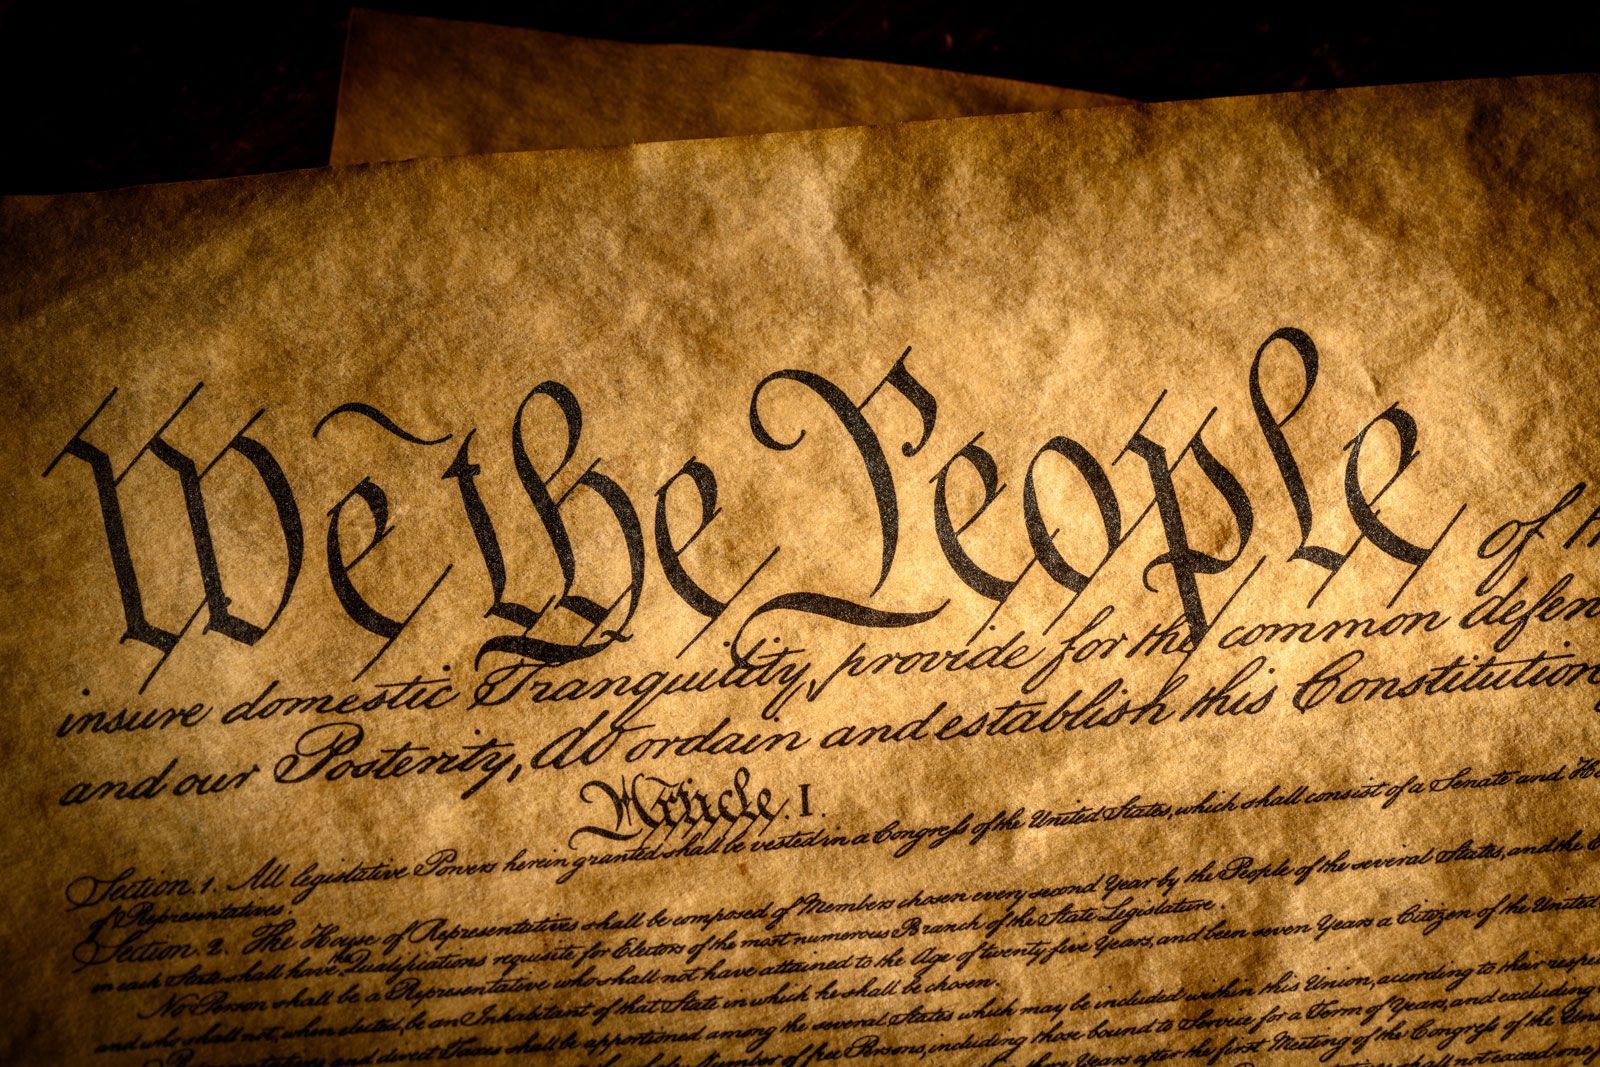 We the People of
insure domestic Tranquility, provide for the common defen
and our Posterity, do ordain and establish this Constitution
Article. I.
Section. 1. All legislative Powers herein granted shall be vested in a Congreſs of the United States, which shall consist of a Senate and
of Representatives.
Section. 2. The House of Representatives shall be composed of Members chosen every second Year by the People of the several States, and the
in each State shall have the Qualifications requisite for Electors of the most numerous Branch of the State Legislature.
No Person shall be a Representative who shall not have attained to the Age of twenty five Years, and been seven Years a Citizen of the United
and who shall not, when elected, be an Inhabitant of that State in which he shall be chosen.
Representatives and direct Taxes shall be apportioned among the several States which may be included within this Union, according to their respe
Number of free Persons, including those bound to Service for a Term of Years, and excluding
three Years after the first Meeting of the Congreſs of the Un
shall not exceed one f